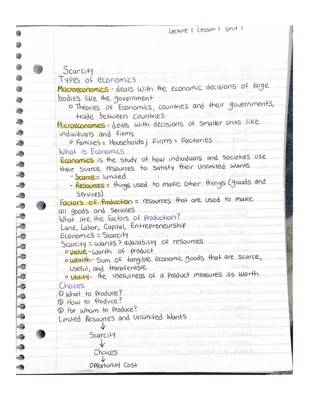 Lecture 1 Lesson 1 Unit 1
Scarcity
Types of Economics
Macroeconomics - deals with the economic decisions of large
bodies like the government
○ Theories of Economics, countries and their governments,
trade between countries
Microeconomics - deals with decisions of smaller units like
individuals and firms
○ Families = Households; Firms = Factories
What is Economics
Economics is the study of how individuals and societies use
their scarce resources to satisfy their unlimited wants
- Scarce = limited
- Resources = things used to make other things (goods and
services)
Factors of Production = resources that are used to make
all goods and services
What are the factors of production?
Land, Labor, Capital, Entrepreneurship
Economics = Scarcity
Scarcity = Wants > availability of resources
○ Value - worth of product
○ Wealth - Sum of tangible economic goods that are scarce,
useful, and transferable
○ Utility - the usefulness of a product measures its worth
Choices
① What to produce?
② How to produce?
③ For whom to produce?
Limited Resources and Unlimited Wants
↓
Scarcity
↓
Choices
↓
Opportunity Cost